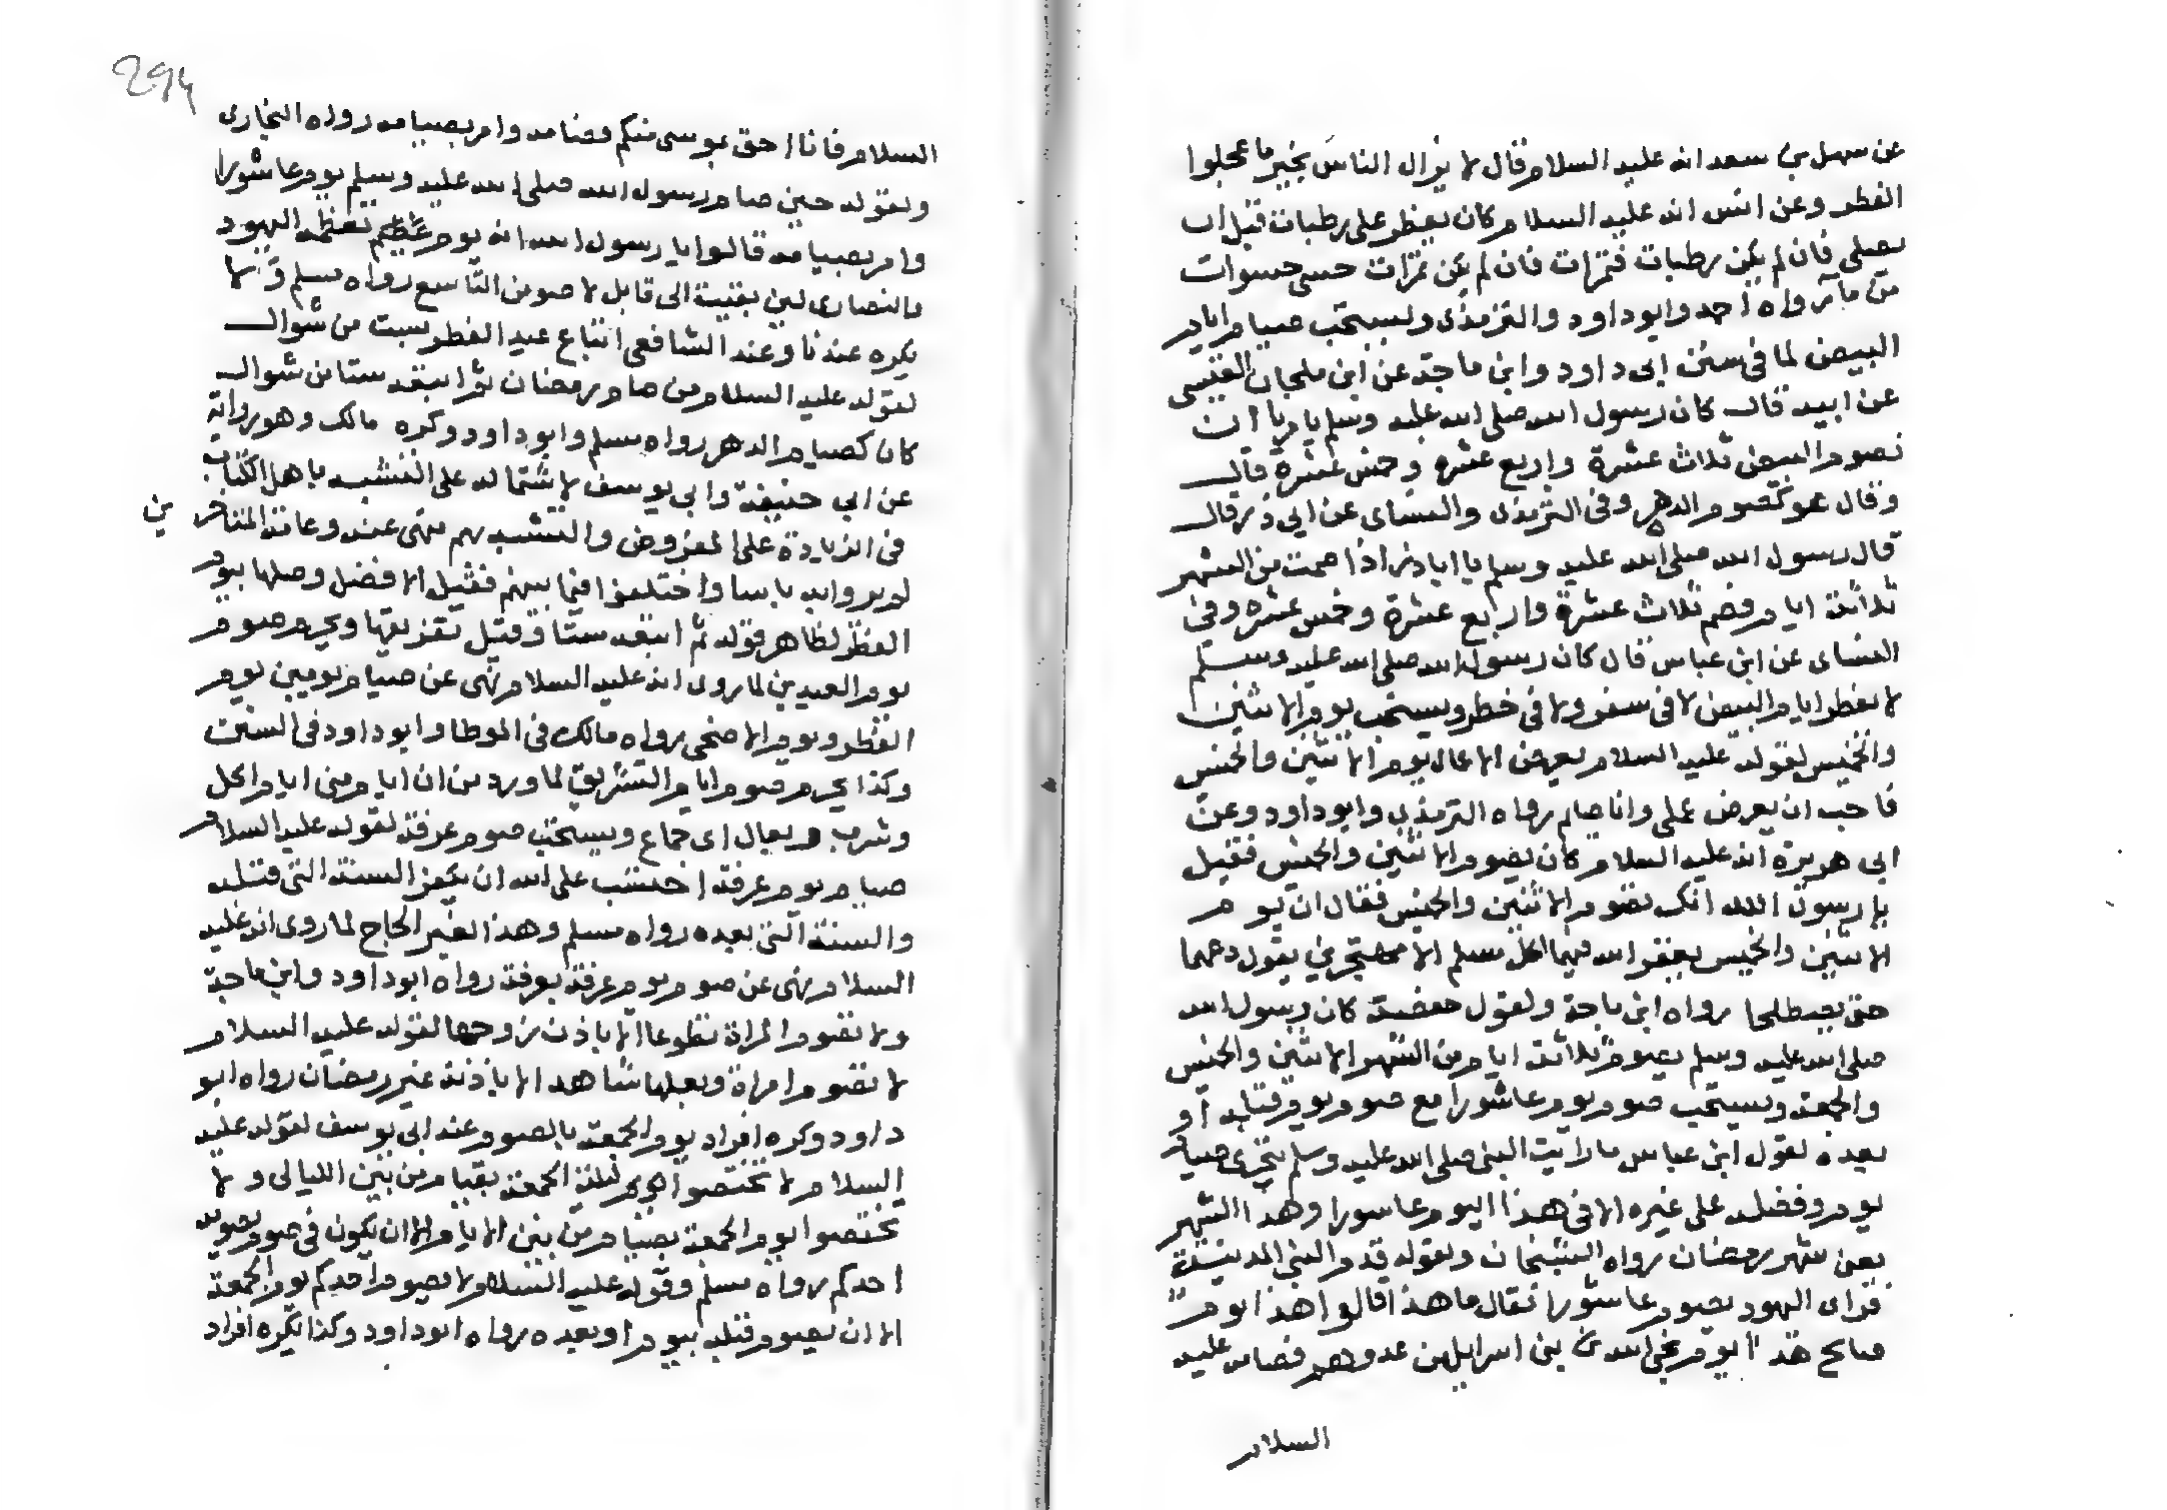 عن سهل بن سعد انه عليه السلام قال لا يزال الناس بخير ما عجلوا
الفطر وعن انس انه عليه السلام كان يفطر على رطبات قبل ان
يصلى فان لم يكن رطبات فتمرات فان لم يكن تمرات حسى حسوات
من ماء رواه احمد وابو داود والترمذى ويستحب صيام ايام
البيض لما فى سنن ابى داود وابن ماجة عن ابن ملحان القيسى
عن ابيه قال كان رسول الله صلى الله عليه وسلم يامرنا ان
نصوم البيض ثلاث عشرة واربع عشرة وخمس عشرة قال
وقال هو كصوم الدهر وفى الترمذى والنساى عن ابى ذر قال
قال رسول الله صلى الله عليه وسلم يا ابا ذر اذا صمت من الشهر
ثلاثة ايام فصم ثلاث عشرة واربع عشرة وخمس عشره وفى
النساى عن ابن عباس قال كان رسول الله صلى الله عليه وسلم
لا يفطر ايام البيض لا فى سفر ولا فى حضر ويستحب يوم الاثنين
والخميس لقوله عليه السلام يعرض الاعمال يوم الاثنين والخميس
فاحب ان يعرض عملى وانا صايم رواه الترمذى وابو داود وعن
ابى هريرة انه عليه السلام كان يصوم الاثنين والخميس فقيل
يا رسول الله انك تصوم الاثنين والخميس فقال ان يوم
الاثنين والخميس يغفر الله فيهما لكل مسلم الا مهتجرين يقول دعهما
حتى يصطلحا رواه ابن ماجة ولقول حفصة كان رسول الله
صلى الله عليه وسلم يصوم ثلاثة ايام من الشهر الاثنين والخميس
والجمعة ويستحب صوم يوم عاشورا مع صوم يوم قبله او
بعده لقول ابن عباس ما رايت النبى صلى الله عليه وسلم يتحرى صيام
يوم وفضله على غيره الا فى هذا اليوم عاشورا وهذا الشهر
يعنى شهر رمضان رواه الشيخان ولقوله قدم النبى المدينة
فراى اليهود تصوم عاشورا فقال ما هذا قالوا هذا يوم
صالح هذا يوم نجى الله فيه بنى اسرايل من عدوهم فصامه عليه
السلام
294
السلام فانا احق بموسى منكم فصامه وامر بصيامه رواه البخارى
ولقوله حين صام رسول الله صلى الله عليه وسلم يوم عاشورا
وامر بصيامه قالوا يا رسول الله انه يوم عظيم تعظمه اليهود
والنصارى لين بقيت الى قابل لاصومن التاسع رواه مسلم ولا
يكره عندنا وعند الشافعى اتباع عيد الفطر بست من شوال
لقوله عليه السلام من صام رمضان ثم اتبعه ستا من شوال
كان كصيام الدهر رواه مسلم وابو داود وكره مالك وهو رواية
عن ابى حنيفة وابى يوسف لاشتماله على التشبه باهل الكتاب
فى الزيادة على المفروض والتشبه بهم منهى عنه وعامة المتاخرين
لم يروا به باسا واختلفوا فيما بينهم فقيل الافضل وصلها بيوم
الفطر لظاهر قوله ثم اتبعه ستا وقيل تفريقها ويحرم صوم
يوم العيدين لما روى انه عليه السلام نهى عن صيام يومين يوم
الفطر ويوم الاضحى رواه مالك فى الموطا وابو داود فى السنن
وكذا يحرم صوم ايام التشريق لما ورد من ان ايام منى ايام اكل
وشرب وبعال اى جماع ويستحب صوم عرفة لقوله عليه السلام
صيام يوم عرفة احتسب على الله ان يكفر السنة التى قبله
والسنة التى بعده رواه مسلم وهذا لغير الحاج لما روى انه عليه
السلام نهى عن صوم يوم عرفة بعرفة رواه ابو داود وابن ماجة
ولا تصوم المراة تطوعا الا باذن زوجها لقوله عليه السلام
لا تصوم امراة وبعلها شاهد الا باذنه غير رمضان رواه ابو
داود وكره افراد يوم الجمعة بالصوم عند ابى يوسف لقوله عليه
السلام لا تختصوا ليلة الجمعة بقيام من بين الليالى ولا
تختصوا يوم الجمعة بصيام من بين الايام الا ان يكون فى صوم يصومه
احدكم رواه مسلم وقوله عليه السلام ولا يصوم احدكم يوم الجمعة
الا ان يصوم قبله بيوم او بعده رواه ابو داود وكذا يكره افراد